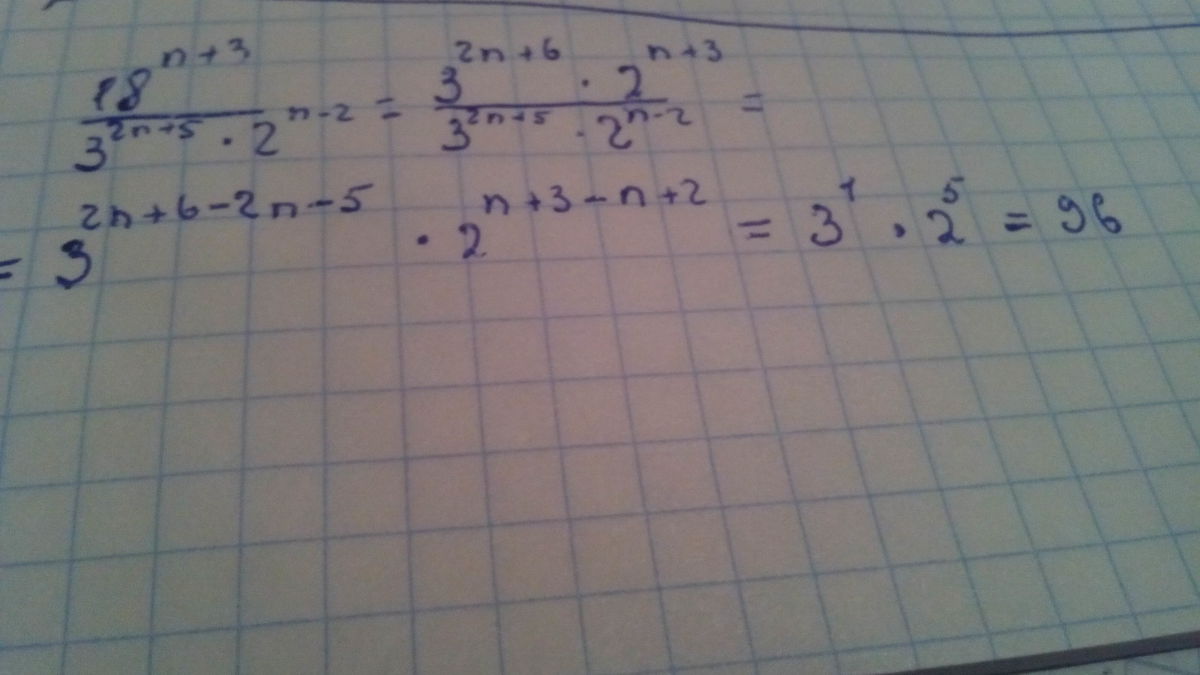 18^{n+3} / 3^{2n+5} · 2^{n-2} = 3^{2n+6} · 2^{n+3} / 3^{2n+5} · 2^{n-2} =
= 3^{2n+6-2n-5} · 2^{n+3-n+2} = 3^1 · 2^5 = 96